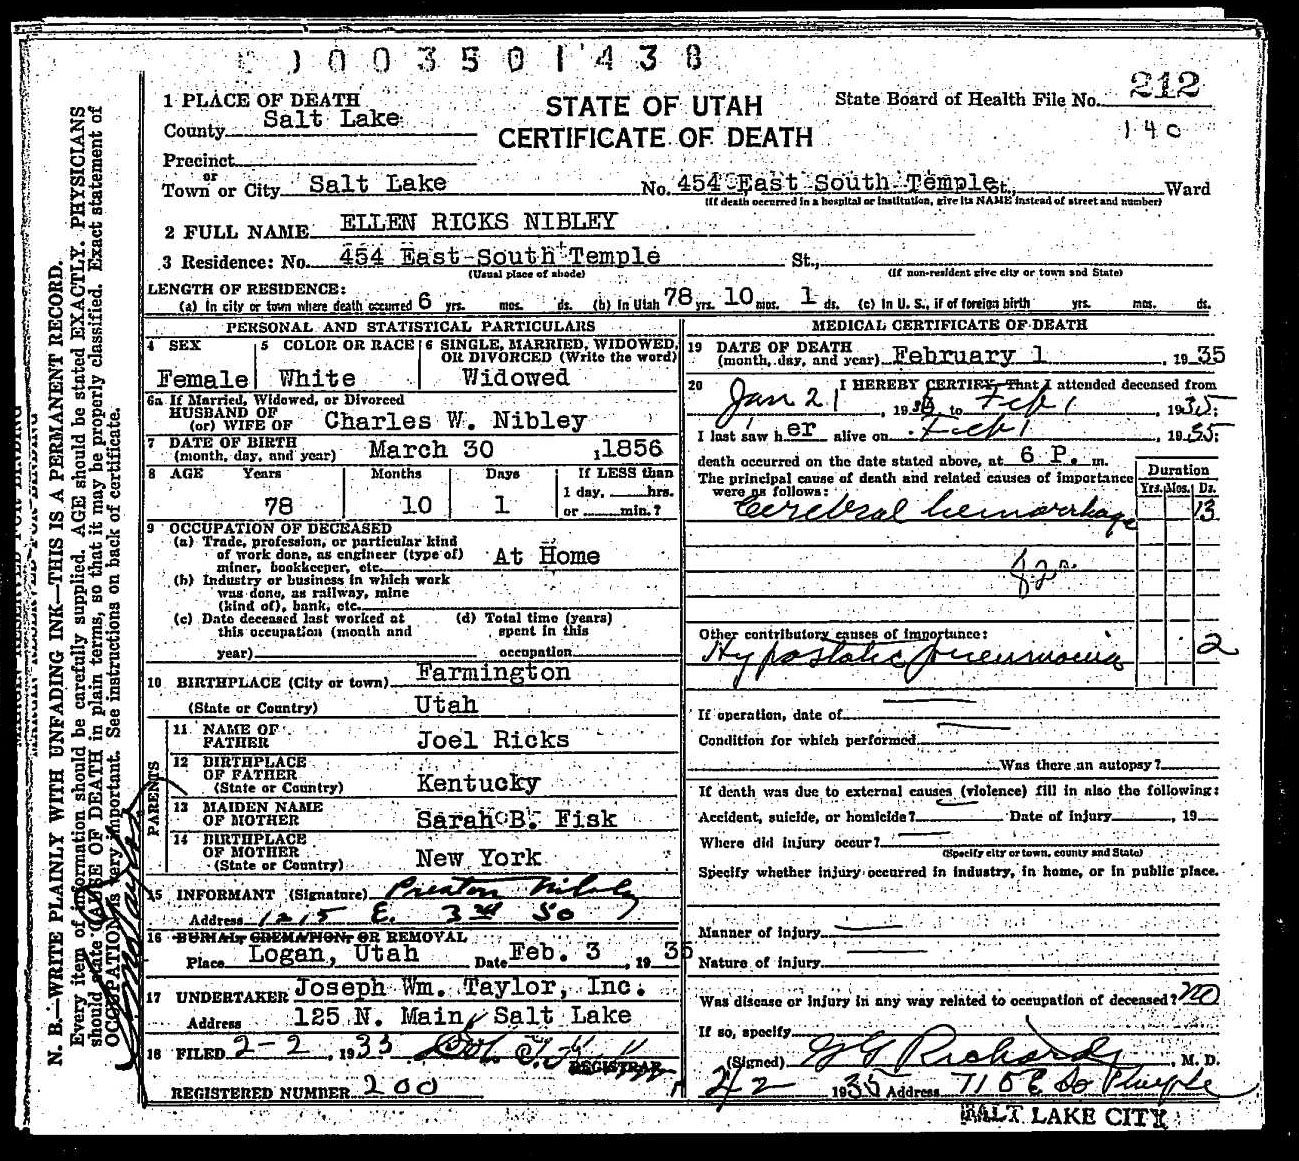 003501438
1 PLACE OF DEATH
County Salt Lake
STATE OF UTAH
CERTIFICATE OF DEATH
State Board of Health File No. 212
140
Precinct
or
Town or City Salt Lake No. 454 East South Temple St., Ward
(If death occurred in a hospital or institution, give its NAME instead of street and number)
2 FULL NAME ELLEN RICKS NIBLEY
3 Residence: No. 454 East South Temple St.,
(Usual place of abode) (If non-resident give city or town and State)
LENGTH OF RESIDENCE:
(a) In city or town where death occurred 6 yrs. mos. ds. (b) In Utah 78 yrs. 10 mos. 1 ds. (c) In U. S., if of foreign birth yrs. mos. ds.
PERSONAL AND STATISTICAL PARTICULARS
4 SEX Female
5 COLOR OR RACE White
6 SINGLE, MARRIED, WIDOWED, OR DIVORCED (Write the word)
Widowed
6a If Married, Widowed, or Divorced
HUSBAND OF
(or) WIFE OF Charles W. Nibley
7 DATE OF BIRTH
(month, day, and year) March 30, 1856
8 AGE Years Months Days If LESS than
78 10 1 1 day, hrs.
or min.?
9 OCCUPATION OF DECEASED
(a) Trade, profession, or particular kind
of work done, as engineer (type of) At Home
miner, bookkeeper, etc.
(b) Industry or business in which work
was done, as railway, mine
(kind of), bank, etc.
(c) Date deceased last worked at (d) Total time (years)
this occupation (month and spent in this
year) occupation
10 BIRTHPLACE (City or town) Farmington
(State or Country) Utah
PARENTS
11 NAME OF
FATHER Joel Ricks
12 BIRTHPLACE
OF FATHER
(State or Country) Kentucky
13 MAIDEN NAME
OF MOTHER Sarah B. Fisk
14 BIRTHPLACE
OF MOTHER
(State or Country) New York
15 INFORMANT (Signature) Preston Nibley
Address 1215 E. 3rd So
16 BURIAL, CREMATION, OR REMOVAL
Place Logan, Utah Date Feb. 3, 1935
17 UNDERTAKER Joseph Wm. Taylor, Inc.
Address 125 N. Main, Salt Lake
18 FILED 2-2, 1933
REGISTRAR
REGISTERED NUMBER 200
MEDICAL CERTIFICATE OF DEATH
19 DATE OF DEATH
(month, day, and year) February 1, 1935
20 I HEREBY CERTIFY, That I attended deceased from
Jan 21, 1935 to Feb 1, 1935;
I last saw her alive on Feb 1, 1935;
death occurred on the date stated above, at 6 P. m.
The principal cause of death and related causes of importance
were as follows:
Duration
Yrs. Mos. Ds.
Cerebral hemorrhage 13
82a
Other contributory causes of importance:
Hypostatic pneumonia 2
If operation, date of
Condition for which performed
Was there an autopsy?
If death was due to external causes (violence) fill in also the following:
Accident, suicide, or homicide? Date of injury, 19
Where did injury occur?
(Specify city or town, county and State)
Specify whether injury occurred in industry, in home, or in public place.
Manner of injury
Nature of injury
Was disease or injury in any way related to occupation of deceased? no
If so, specify
(Signed) G G Richards, M. D.
2/2 1935 Address 710 E So Temple
SALT LAKE CITY
N. B.—WRITE PLAINLY WITH UNFADING INK—THIS IS A PERMANENT RECORD.
Every item of information should be carefully supplied. AGE should be stated EXACTLY. PHYSICIANS
should state CAUSE OF DEATH in plain terms, so that it may be properly classified. Exact statement of
OCCUPATION is very important. See instructions on back of certificate.
MARGIN RESERVED FOR BINDING